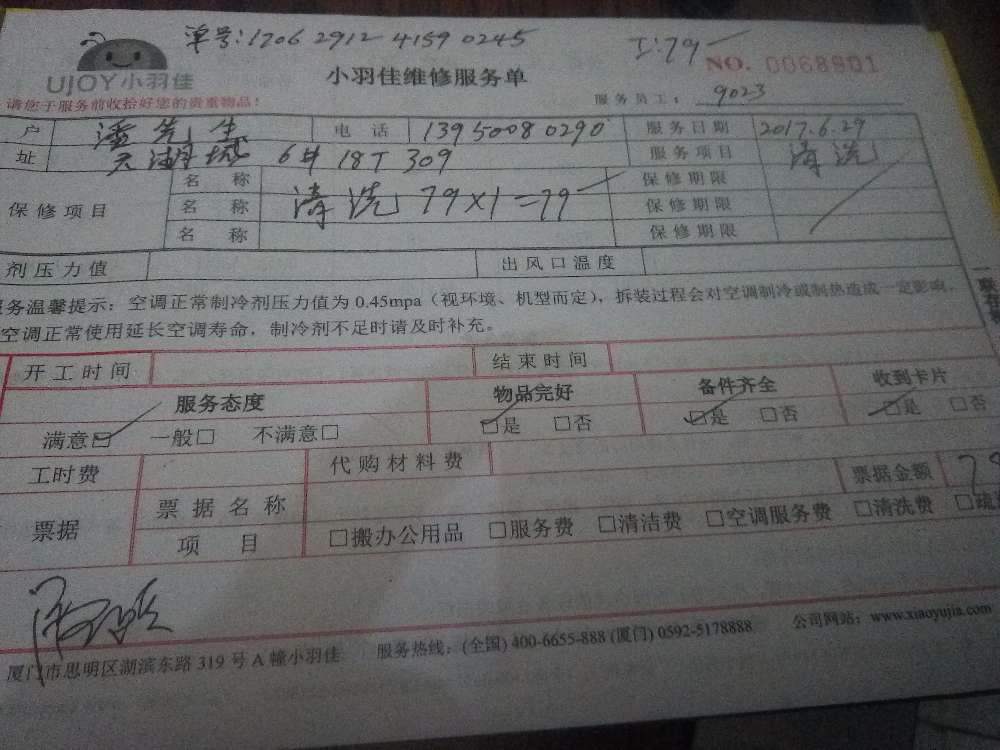 单号:1706 2912 4159 0245
工:79
UJOY小羽佳
小羽佳维修服务单
NO. 0068901
请您于服务前收拾好您的贵重物品!
服务员工: 9023
户 潘先生 电话 13950080290 服务日期 2017.6.29
址 天湖城 6# 18T 309 服务项目 清洗
保修项目 名称 清洗 79×1=79 保修期限
名称 保修期限
名称 保修期限
剂压力值 出风口温度
务温馨提示:空调正常制冷剂压力值为 0.45mpa(视环境、机型而定),拆装过程会对空调制冷或制热造成一定影响。
空调正常使用延长空调寿命,制冷剂不足时请及时补充。
开工时间 结束时间
服务态度 物品完好 备件齐全 收到卡片
满意□ 一般□ 不满意□ □是 □否 □是 □否 □是 □否
工时费 代购材料费
票据 票据名称 票据金额
项目 □搬办公用品 □服务费 □清洁费 □空调服务费 □清洗费 □疏
厦门市思明区湖滨东路 319 号 A 幢小羽佳 服务热线:(全国) 400-6655-888 (厦门) 0592-5178888 公司网站:www.xiaoyujia.com